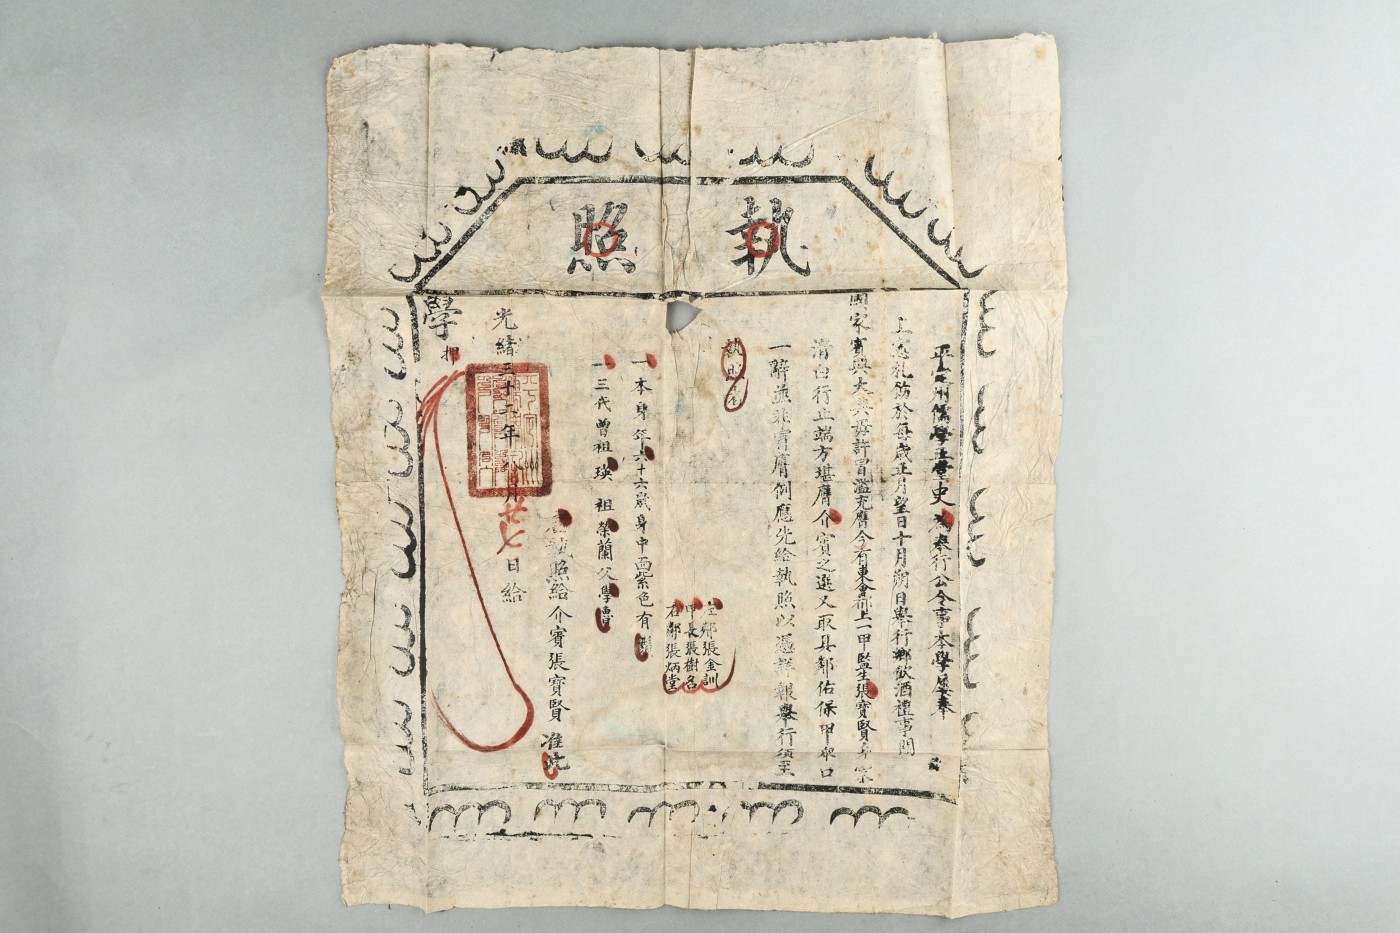 執照
平定州儒學正堂史 為奉行公令事本學屢奉
上憲札飭於每歲正月望日十月朔日舉行鄉飲酒禮事關
國家賓興大典毋許冒濫充膺今有東會都上一甲監生張寶賢身家
清白行止端方堪膺介賓之選又取具鄰佑保甲眾口
一辭並非冒膺例應先給執照以憑詳報舉行須至
執照者
左鄰張金訓
甲長張樹名
右鄰張炳堂
一本身年六十六歲身中面紫色有鬚
一三代曾祖瑛 祖榮蘭 父學曹
右執照給介賓張寶賢 准此
光緒三十二年 月廿七日給
學
押